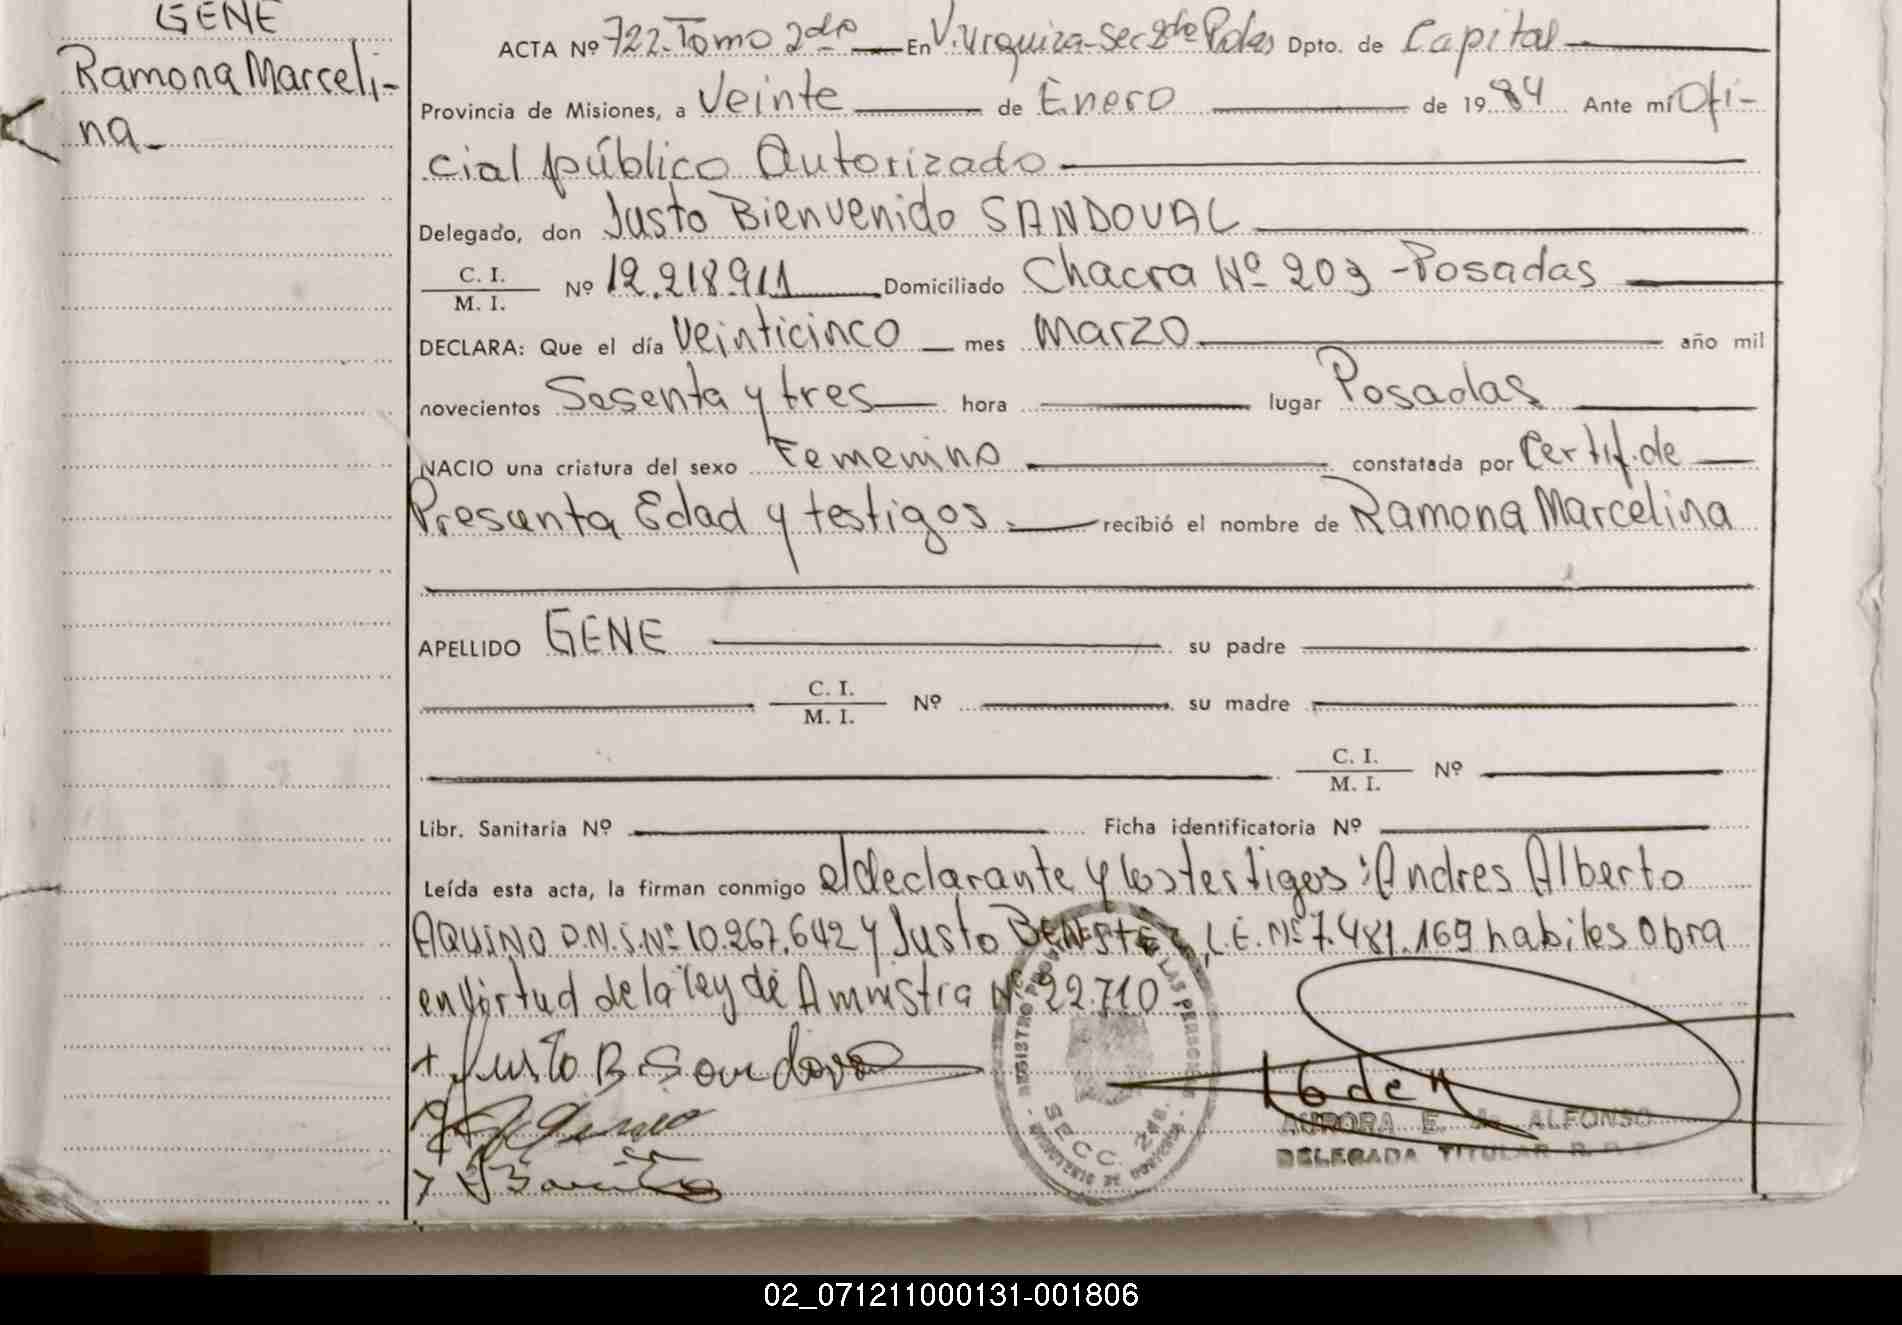 GENE
Ramona Marceli-
na_
ACTA Nº 722. Tomo 2do En V. Urquiza-Sec 2da Pdas Dpto. de Capital
Provincia de Misiones, a Veinte de Enero de 19 84 Ante mí Ofi-
cial público Autorizado
Delegado, don Justo Bienvenido SANDOVAL
C. I.
M. I. Nº 12.218.911 Domiciliado Chacra Nº 203 -Posadas
DECLARA: Que el día Veinticinco mes Marzo año mil
novecientos Sesenta y tres hora lugar Posadas
NACIO una criatura del sexo Femenino constatada por Certif. de
Presunta Edad y testigos recibió el nombre de Ramona Marcelina
APELLIDO GENE su padre
C. I.
M. I. Nº su madre
C. I.
M. I. Nº
Libr. Sanitaria Nº Ficha identificatoria Nº
Leída esta acta, la firman conmigo el declarante y los testigos: Andres Alberto
AQUINO D.N.I. Nº 10.267.642 y Justo L.E. Nº 7.481.169 habiles Obra
en Virtud de la ley de Amnistia Nº 22.710
+ Justo B. Sandoval
AURORA E. de ALFONSO
DELEGADA TITULAR R. P.
REGISTRO DE LAS PERSONAS
SECC. 2da.
02_071211000131-001806